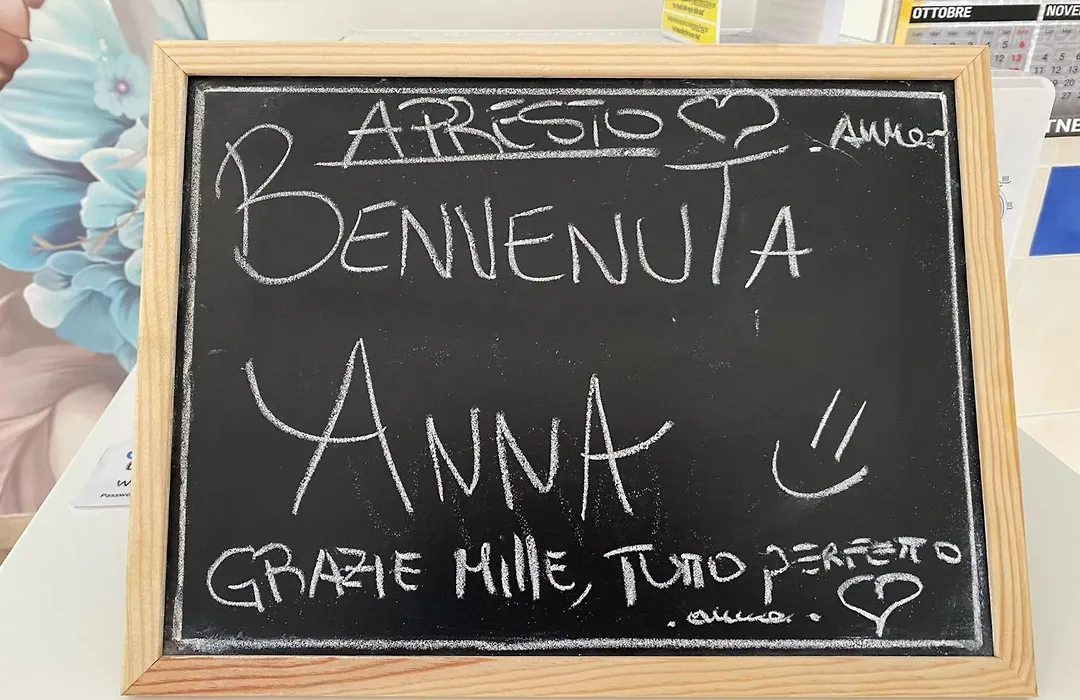 OTTOBRE
NOVE
A PRESTO
Anna
BENVENUTA
ANNA
GRAZIE MILLE, TUTTO PERFETTO
anna